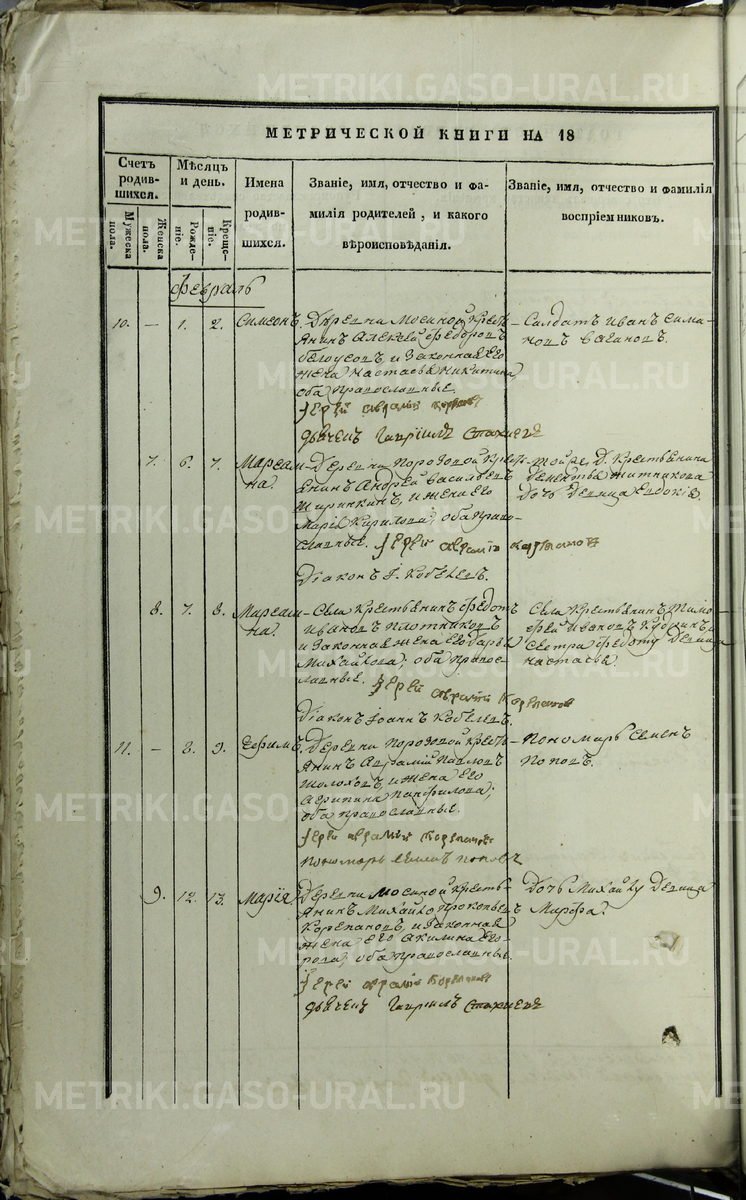 METRIKI.GASO-URAL.RU
МЕТРИЧЕСКОЙ КНИГИ НА 18
Счетъ родив-шихся.
Мужеска пола.
Женска пола.
Мѣсяцъ и день.
Рожде-ніе.
Креще-ніе.
Имена родив-шихся.
Званіе, имя, отчество и фа-
милія родителей, и какого
вѣроисповѣданія.
Званіе, имя, отчество и фамилія
воспріемниковъ.
Февраль
10. — 1. 2. Симеонъ.
Деревни Мосиной кресть-
янинъ Алексѣй Федоровъ
Белоусовъ и законная его
жена Настасья Никитина,
оба православные.
Іерей Авраамій
дьячекъ Гавріилъ Стахиевъ
Салдатъ Иванъ Сима-
новъ
7. 6. 7. Мареам-
на.
Деревни Порозовой кресть-
янинъ Андрей Васильевъ
Ширинкинъ, и жена его
Марія Кирилова, оба право-
славные. Іерей Авраамій Корепановъ
Діаконъ І. Кобелевъ.
той же Д. крестьянина
Дементья Житникова
дочь девица Евдокія.
8. 7. 8. Мареам-
на.
Села крестьянинъ Федотъ
Ивановъ Плотниковъ
и законная жена его Дарья
Михайлова, оба право-
славные. Іерей Авраамій Корепановъ
Діаконъ Іоаннъ Кобелевъ.
Села крестьянинъ Тимо-
фей Ивановъ и
сестра Федоту девица
Настасья.
11. — 8. 9. Ефимъ.
Деревни Порозовой кресть-
янинъ Авраамій Павловъ
Шолохов, и жена его
Агрипина Панфилова,
оба православные.
Іерей Авраамій Корепановъ
Пономарь Семенъ Поповъ
Пономарь Семенъ
Поповъ.
9. 12. 13. Марія.
Деревни Мосиной кресть-
янинъ Михайло Прокопьевъ
Корепановъ, и законная
жена его Акилина Его-
рова, оба православные.
Іерей Авраамій Корепановъ
дьячекъ Гавріилъ Стахиевъ
Дочь Михайлу девица
Марфа.